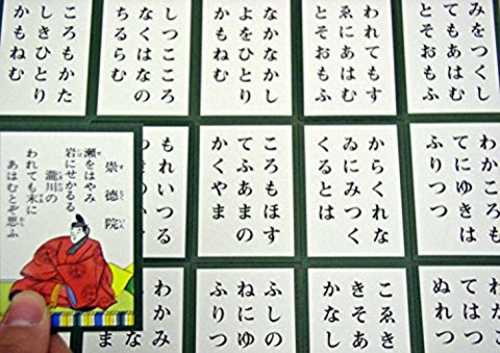 みをつくし
てもあはむ
とそおもふ
われてもす
ゑにあはむ
とそおもふ
なかなかし
よをひとり
かもねむ
しつこころ
なくはなの
ちるらむ
ころもかた
しきひとり
かもねむ
わかころも
てにゆきは
ふりつつ
からくれな
ゐにみつく
るとは
ころもほす
てふあまの
かくやま
もれいつる
崇徳院
瀬をはやみ
岩にせかるる
瀧川の
われても末に
あはむとぞ思ふ
わかこ
てはつ
ぬれつ
こゑき
きそあ
かなし
ふしの
ねにゆ
ふりつ
わかみ